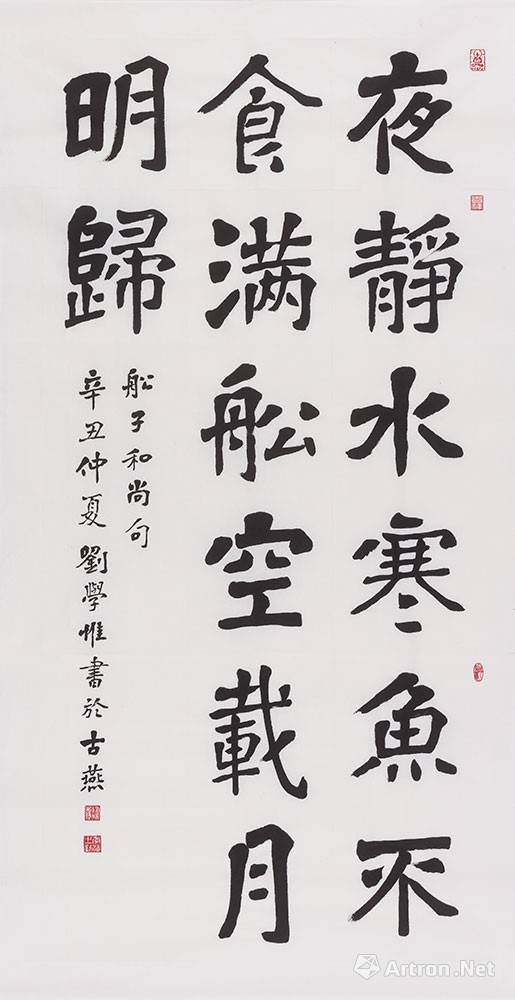 夜靜水寒魚不
食滿舩空載月
明歸
舩子和尚句
辛丑仲夏劉學惟書於古燕
Artron.Net